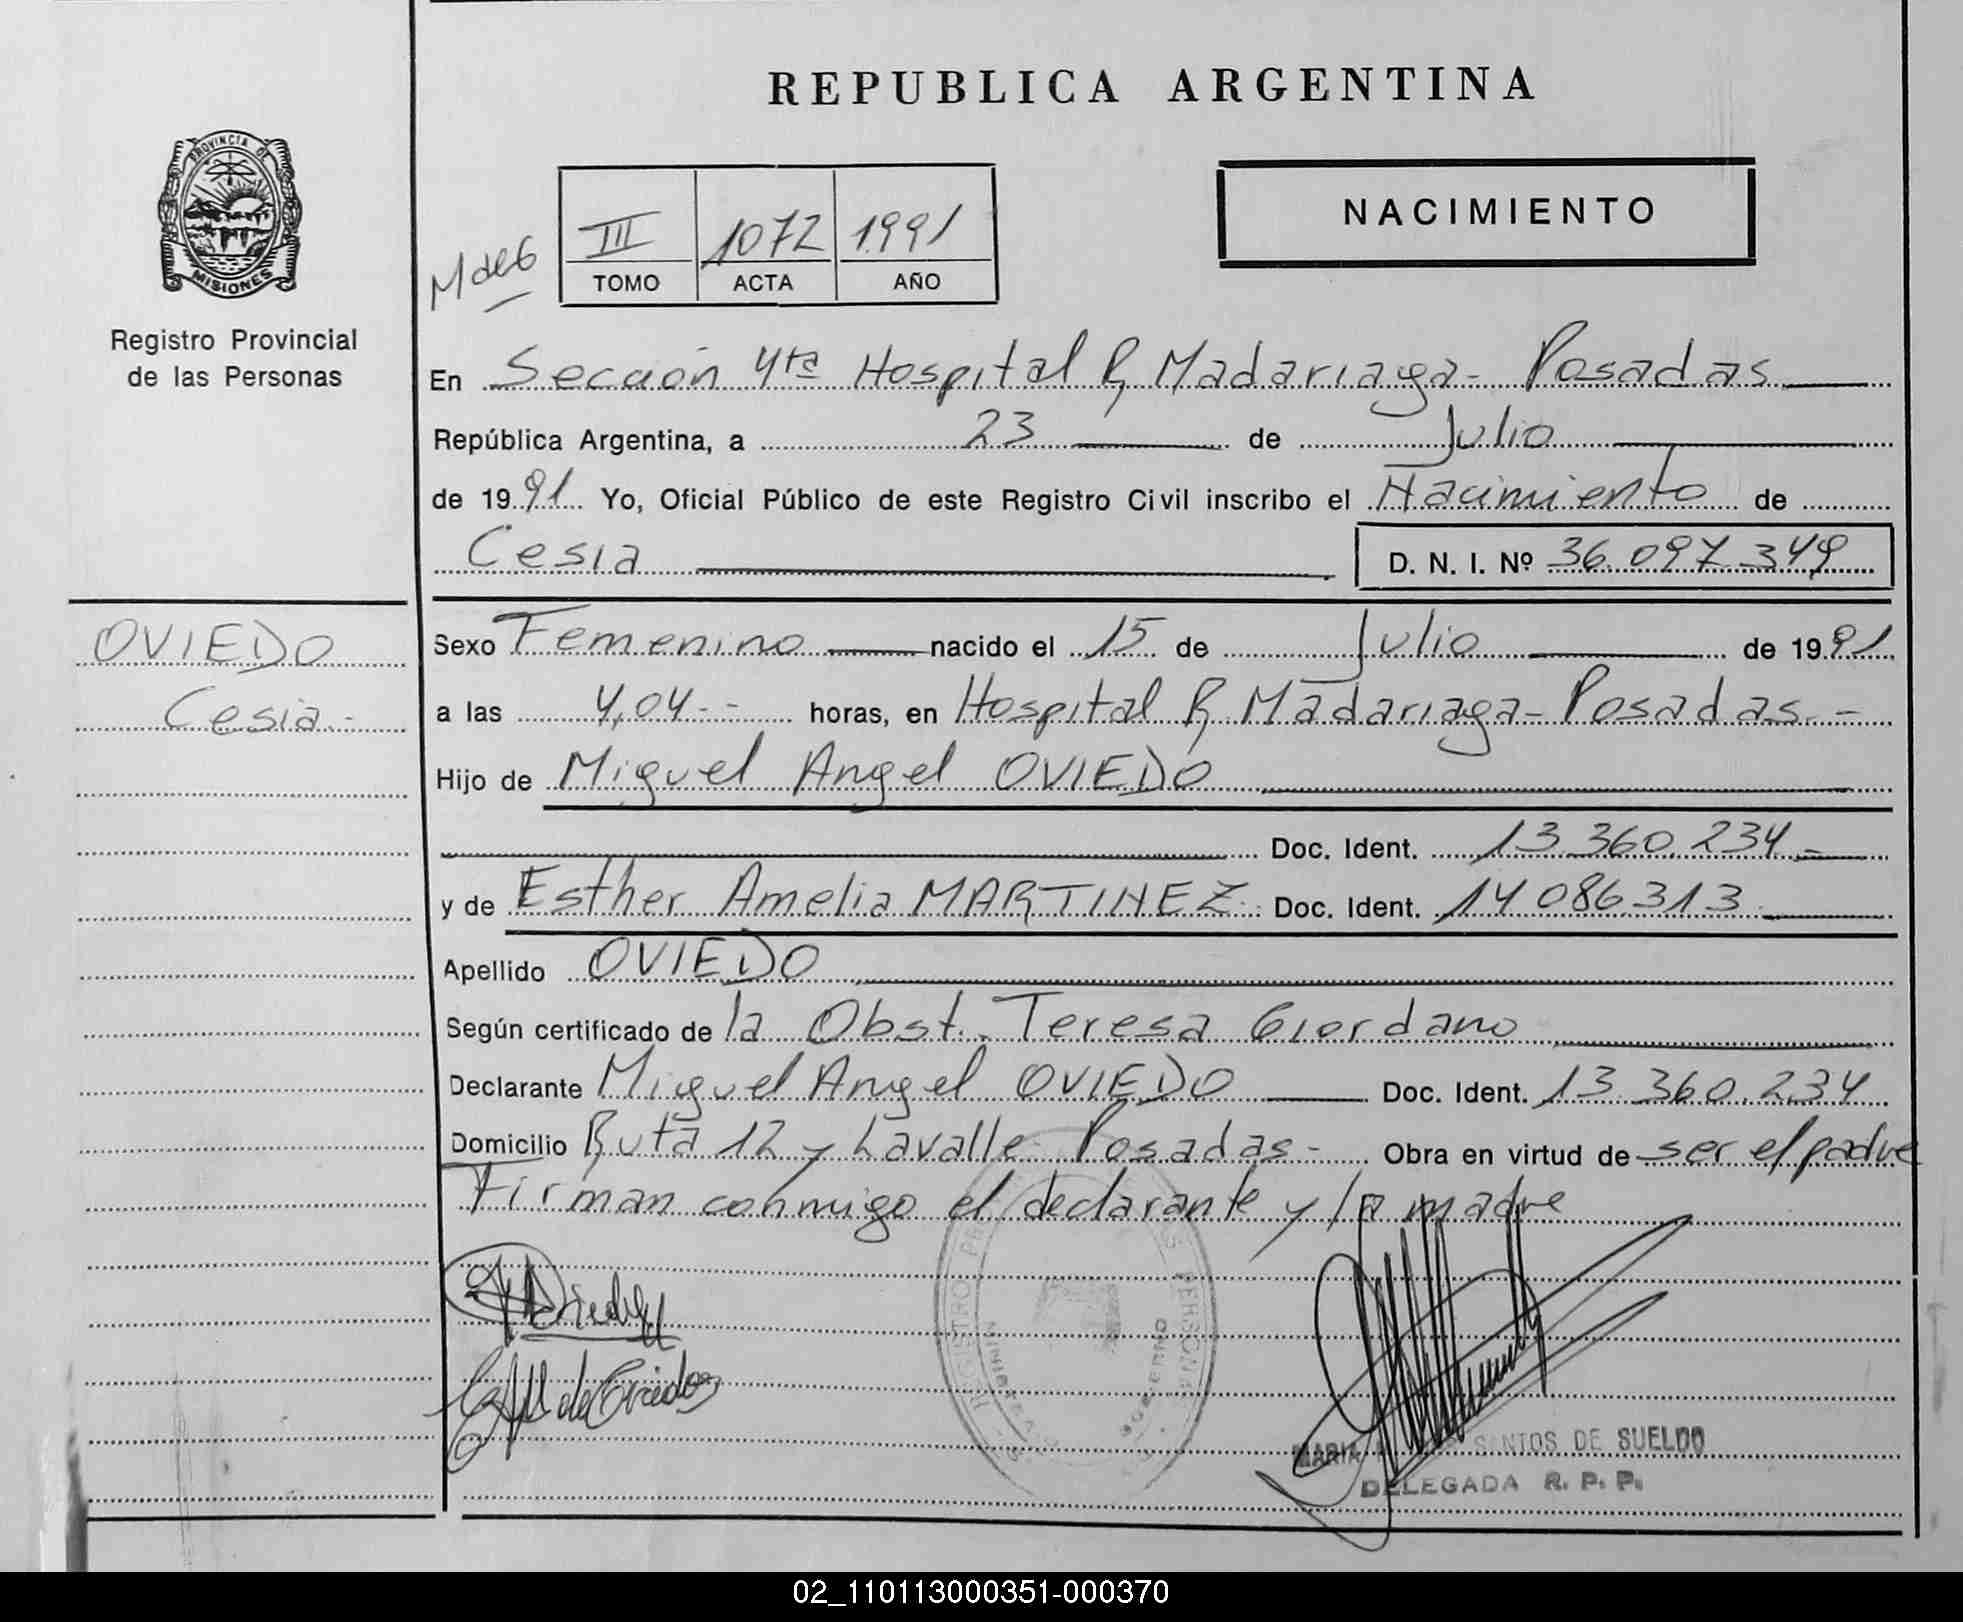 REPUBLICA ARGENTINA
PROVINCIA DE
MISIONES
Registro Provincial
de las Personas
NACIMIENTO
III 1072 1991
TOMO ACTA AÑO
En Sección 4ta Hospital R, Madariaga - Posadas
República Argentina, a 23 de Julio
de 1991 Yo, Oficial Público de este Registro Civil inscribo el Nacimiento de
Cesia D. N. I. Nº 36.097.349
OVIEDO
Cesia.-
Sexo Femenino nacido el 15 de Julio de 1991
a las 4,04-- horas, en Hospital R, Madariaga - Posadas.-
Hijo de Miguel Angel OVIEDO
Doc. Ident. 13.360.234-
y de Esther Amelia MARTINEZ Doc. Ident. 14.086.313
Apellido OVIEDO
Según certificado de la Obst. Teresa Giordano
Declarante Miguel Angel OVIEDO Doc. Ident. 13.360.234
Domicilio Ruta 12 y Lavalle Posadas - Obra en virtud de ser el padre
Firman conmigo el declarante y la madre
de Oviedo
REGISTRO PERSONAS
GOBIERNO
MARIA SANTOS DE SUELDO
DELEGADA R. P. P.
02_110113000351-000370